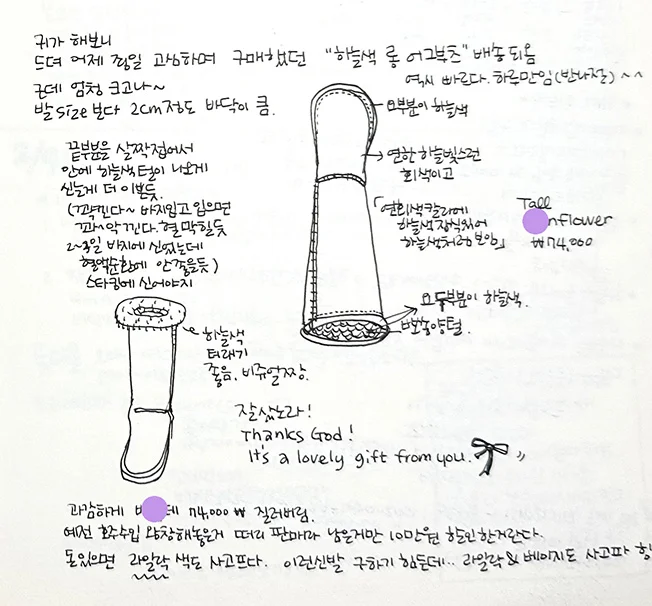 귀가 해보니
드뎌 어제 종일 고심하며 구매했던 "하늘색 롱 어그부츠" 배송되옴
역시 빠르다. 하루만임(반나절)~~
근데 엄청 크고나~
발 size 보다 2cm정도 바닥이 큼.
요부분이 하늘색
끝부분을 살짝 접어서
안에 하늘색털이 나오게
신는게 더 이쁜듯.
(꽉낀다~ 바지입고 입으면
꽈~악 낀다. 혈 막힐듯
2~3일 바지에 신었는데
혈액순환에 안좋을듯)
스타킹에 신어야지
연한 하늘빛스런
회색이고
「연회색칼라에
하늘색 장식있어
하늘색처럼 보임」
Tall
nflower
₩74,000
요부분이 하늘색.
뽀송양털.
하늘색
터래기
좋음. 비쥬얼짱.
잘샀노라!
Thanks God!
It's a lovely gift from you.
과감하게 데 74,000 ₩ 질러버림.
예전 호주수입 왕창해놓은거 떠리 판매라 남은거만 10만원 할인한거란다.
돈있으면 라일락 색도 사고프다. 이런신발 구하기 힘든데... 라일락 & 베이지도 사고파